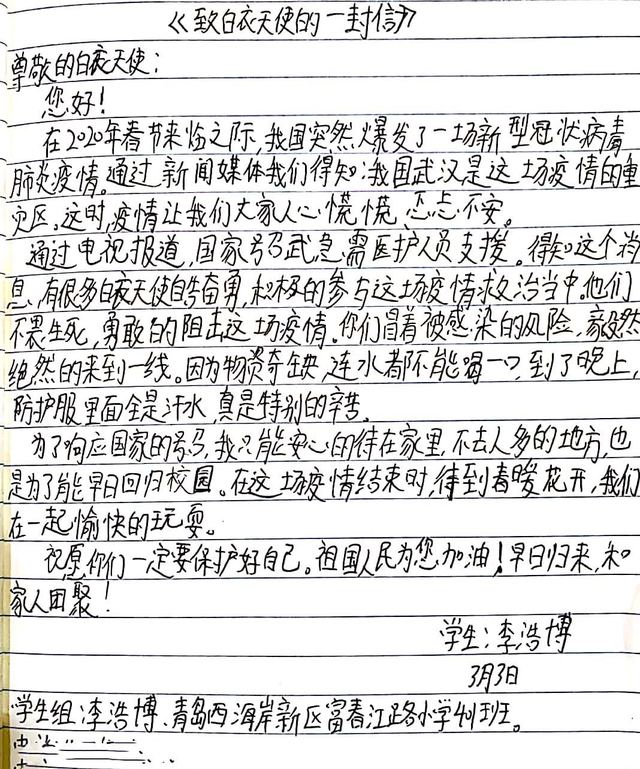 《致白衣天使的一封信》
尊敬的白衣天使：
您好！
在2020年春节来临之际，我国突然爆发了一场新型冠状病毒
肺炎疫情。通过新闻媒体我们得知：我国武汉是这一场疫情的重
灾区。这时，疫情让我们大家人心慌慌，忐忑不安。
通过电视报道，国家号召武急需医护人员支援。得知这个消
息，有很多白衣天使自告奋勇，积极的参与这场疫情救治当中。他们
不畏生死，勇敢的阻击这场疫情。你们冒着被感染的风险，毅然
绝然的来到一线。因为物资奇缺，连水都不能喝一口，到了晚上，
防护服里面全是汗水，真是特别的辛苦。
为了响应国家的号召，我只能安心的待在家里，不去人多的地方，也
是为了能早日回归校园。在这一场疫情结束时，待到春暖花开，我们
在一起愉快的玩耍。
祝愿你们一定要保护好自己。祖国人民为您加油！早日归来，和
家人团聚！
学生：李浩博
3月3日
学生组：李浩博、青岛西海岸新区富春江路小学4.1班。